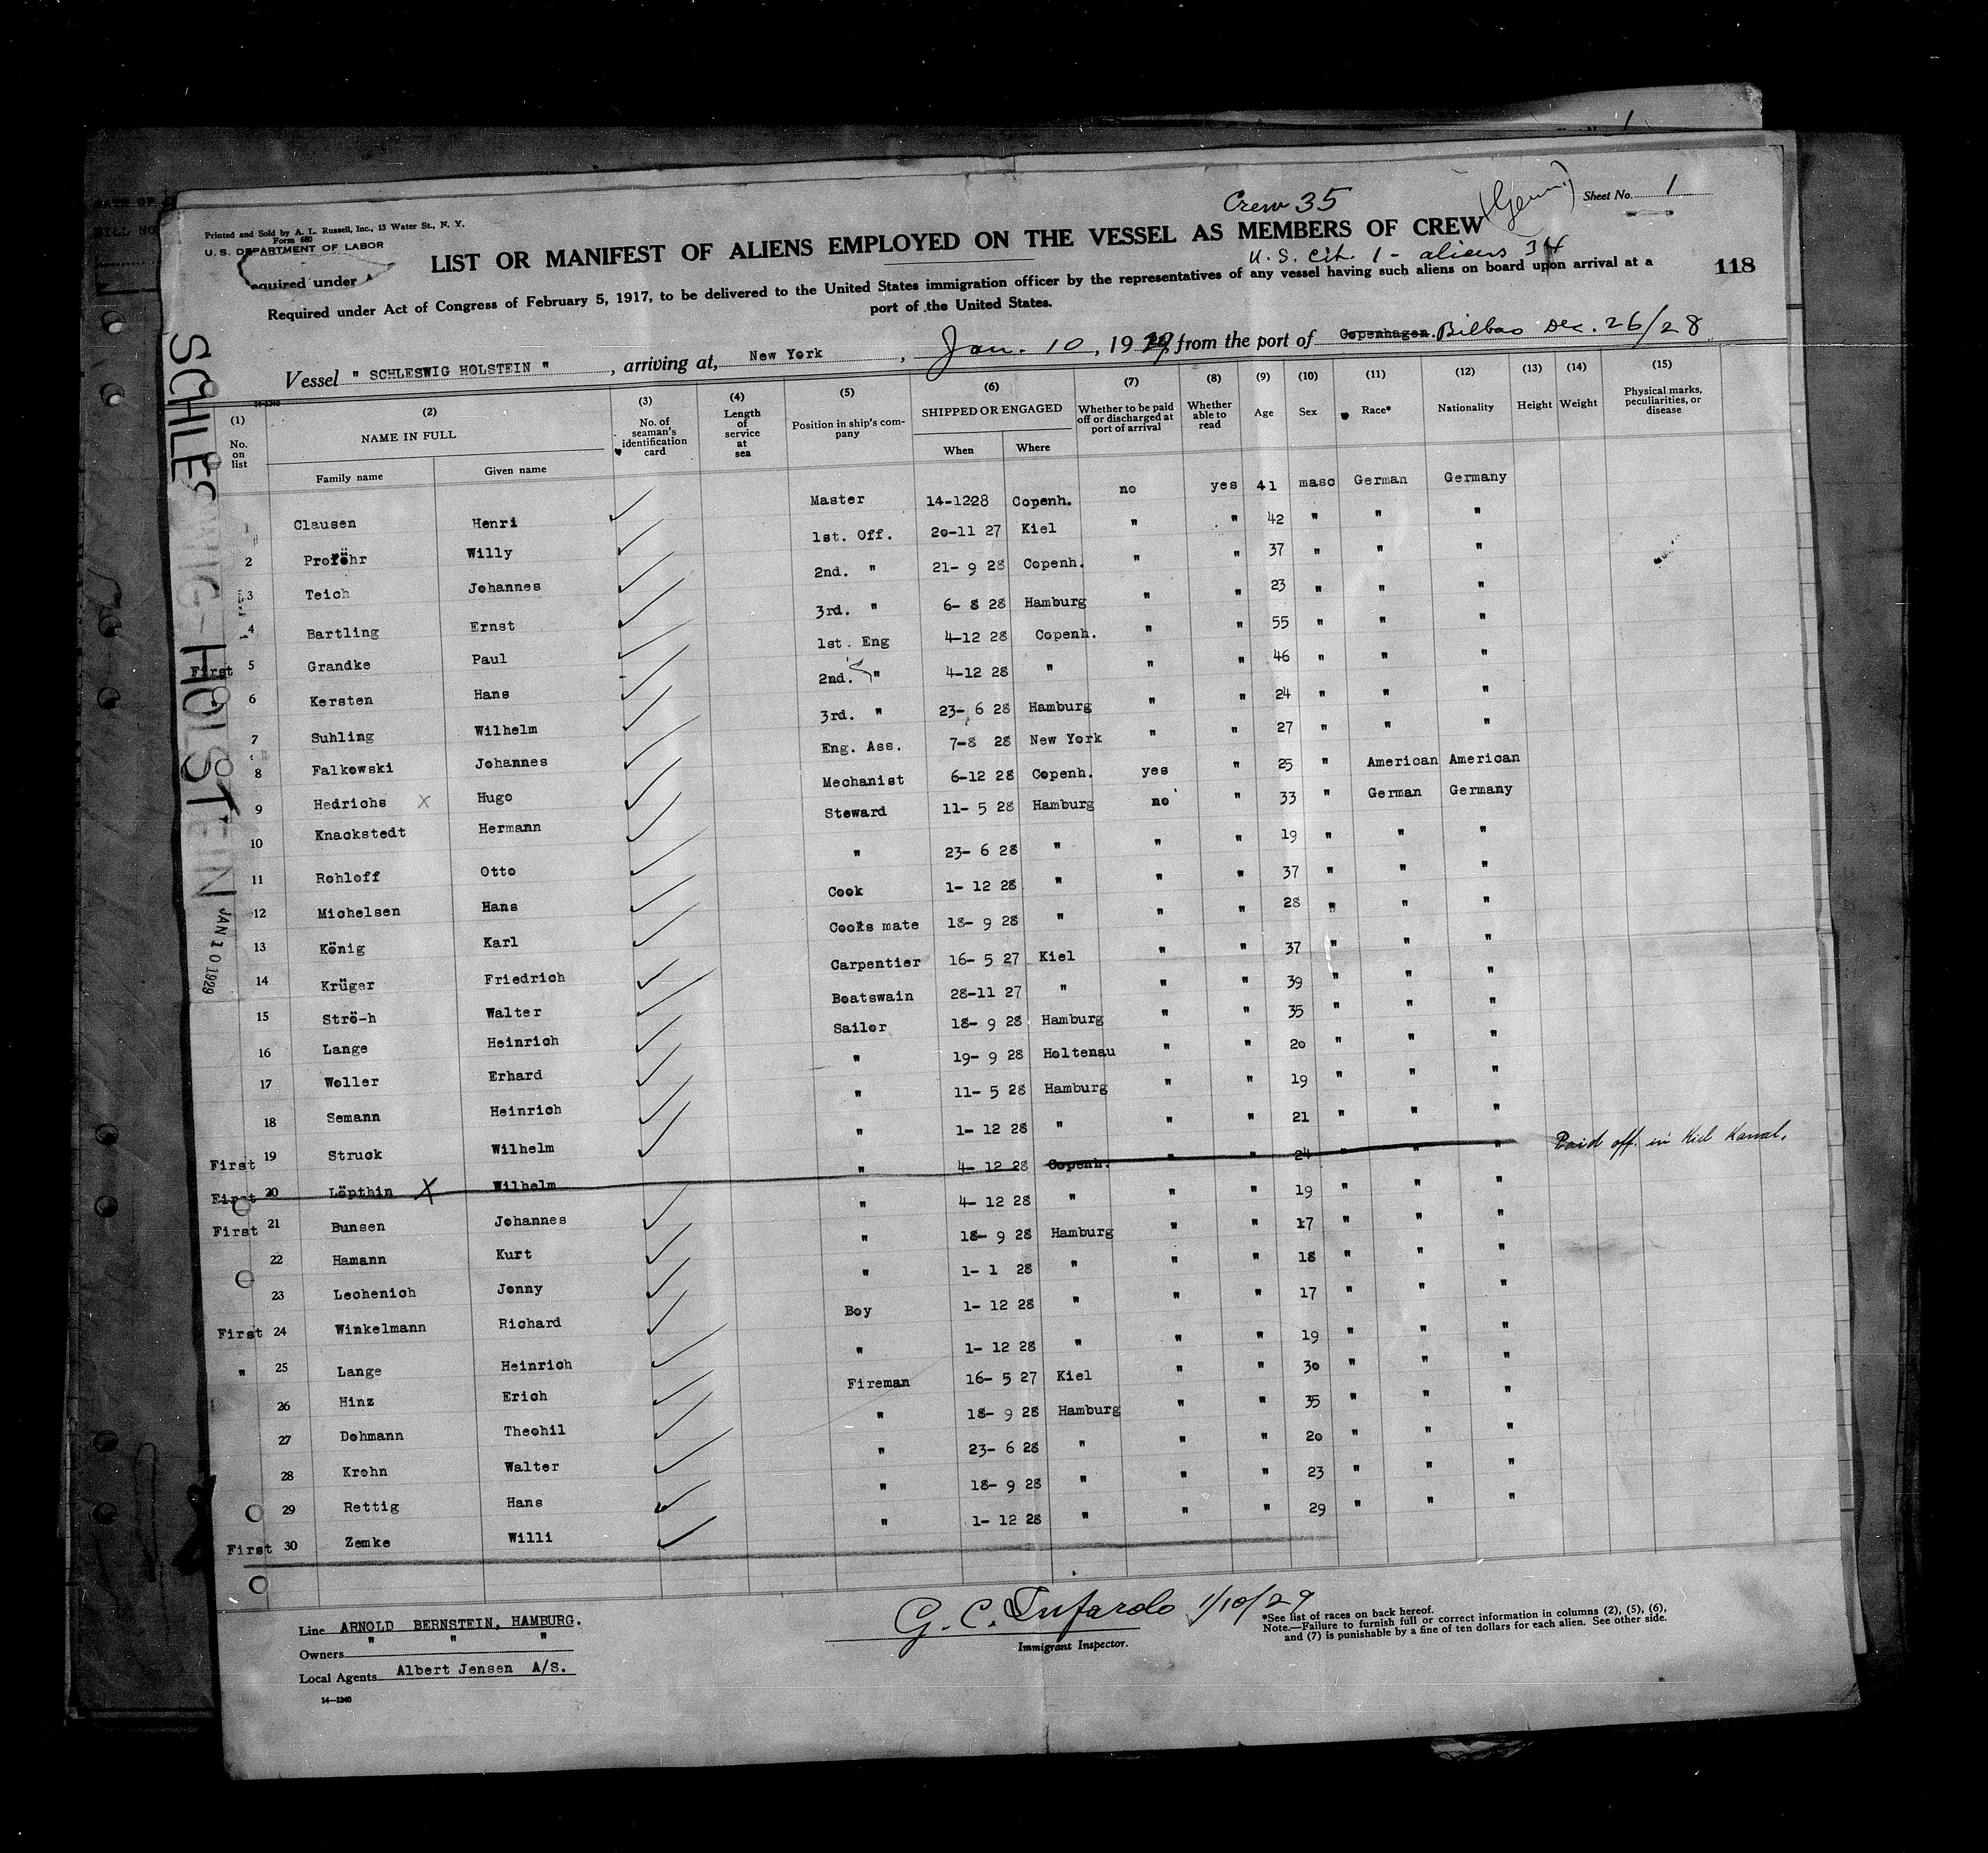 Crew 35 (Germ.) Sheet No. 1
Printed and Sold by A. L. Russell, Inc., 13 Water St., N. Y.
Form 680
U. S. DEPARTMENT OF LABOR
LIST OR MANIFEST OF ALIENS EMPLOYED ON THE VESSEL AS MEMBERS OF CREW
U. S. cit. 1 - aliens 34
118
equired under A
Required under Act of Congress of February 5, 1917, to be delivered to the United States immigration officer by the representatives of any vessel having such aliens on board upon arrival at a
port of the United States.
Vessel " SCHLESWIG HOLSTEIN ", arriving at, New York, Jan. 10, 1929, from the port of Copenhagen. Bilbao Dec. 26/28
14-1240
(1) (2) (3) (4) (5) (6) (7) (8) (9) (10) (11) (12) (13) (14) (15)
No. on list NAME IN FULL No. of seaman's identification card Length of service at sea Position in ship's company SHIPPED OR ENGAGED Whether to be paid off or discharged at port of arrival Whether able to read Age Sex Race* Nationality Height Weight Physical marks, peculiarities, or disease
Family name Given name When Where
1 Clausen Henri Master 14-1228 Copenh. no yes 41 masc German Germany
2 Proföhr Willy 1st. Off. 20-11 27 Kiel " " 42 " " "
3 Teich Johannes 2nd. " 21- 9 28 Copenh. " " 37 " " "
4 Bartling Ernst 3rd. " 6- 8 28 Hamburg " " 23 " " "
First 5 Grandke Paul 1st. Eng 4-12 28 Copenh. " " 55 " " "
6 Kersten Hans 2nd. " 4-12 28 " " " 46 " " "
7 Suhling Wilhelm 3rd. " 23- 6 28 Hamburg " " 24 " " "
8 Falkowski Johannes Eng. Ass. 7-8 28 New York " " 27 " " "
9 Hedrichs X Hugo Mechanist 6-12 28 Copenh. yes " 25 " American American
10 Knackstedt Hermann Steward 11- 5 28 Hamburg no " 33 " German Germany
11 Rohloff Otto " 23- 6 28 " " " 19 " " "
12 Michelsen Hans Cook 1- 12 28 " " " 37 " " "
13 König Karl Cooks mate 18- 9 28 " " " 28 " " "
14 Krüger Friedrich Carpentier 16- 5 27 Kiel " " 37 " " "
15 Strö-h Walter Boatswain 28-11 27 " " " 39 " " "
16 Lange Heinrich Sailor 18- 9 28 Hamburg " " 35 " " "
17 Woller Erhard " 19- 9 28 Holtenau " " 20 " " "
18 Semann Heinrich " 11- 5 28 Hamburg " " 19 " " "
First 19 Struck Wilhelm " 1- 12 28 " " " 21 " " "
First 20 Löpthin X Wilhelm " 4- 12 28 Copenh. " " 24 " " " Paid off in Kiel Kanal.
First 21 Bunsen Johannes " 4- 12 28 " " " 19 " " "
22 Hamann Kurt " 18- 9 28 Hamburg " " 17 " " "
23 Lechenich Jonny " 1- 1 28 " " " 18 " " "
First 24 Winkelmann Richard Boy 1- 12 28 " " " 17 " " "
" 25 Lange Heinrich " 1- 12 28 " " " 19 " " "
26 Hinz Erich Fireman 16- 5 27 Kiel " " 30 " " "
27 Dohmann Theohil " 18- 9 28 Hamburg " " 35 " " "
28 Krohn Walter " 23- 6 28 " " " 20 " " "
29 Rettig Hans " 18- 9 28 " " " 23 " " "
First 30 Zemke Willi " 1- 12 28 " " " 29 " " "
SCHLESWIG-HOLSTEIN JAN 10 1929
Line ARNOLD BERNSTEIN, HAMBURG.
Owners " " "
Local Agents Albert Jensen A/S.
14-1240
G. C. Tufarolo 1/10/29
Immigrant Inspector.
*See list of races on back hereof.
Note.—Failure to furnish full or correct information in columns (2), (5), (6),
and (7) is punishable by a fine of ten dollars for each alien. See other side.